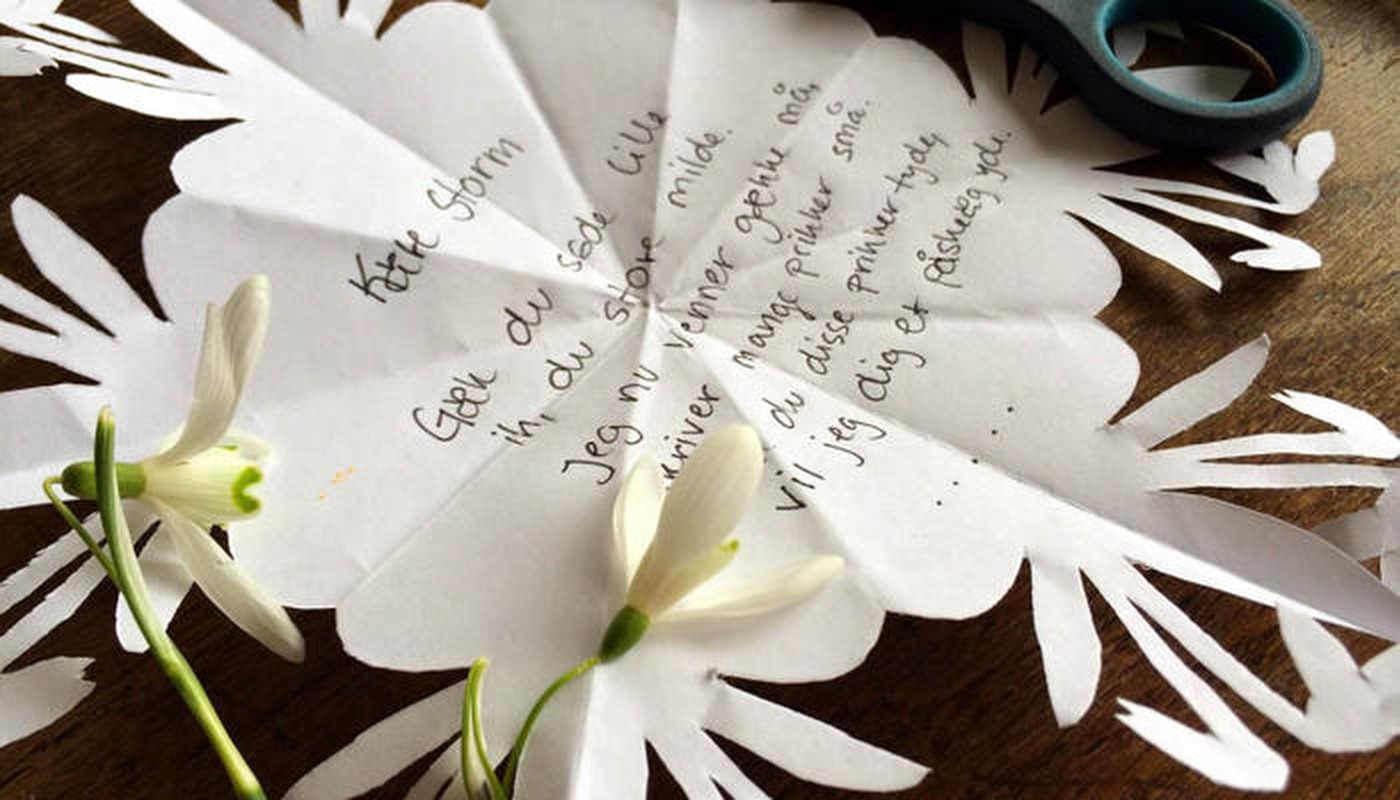 Kære Storm
Gæk du søde lille
ih, du store milde.
Jeg nu venner gække må,
skriver mange prikker små.
du disse prikker tyde,
vil jeg dig et påskeæg yde.
. . . .